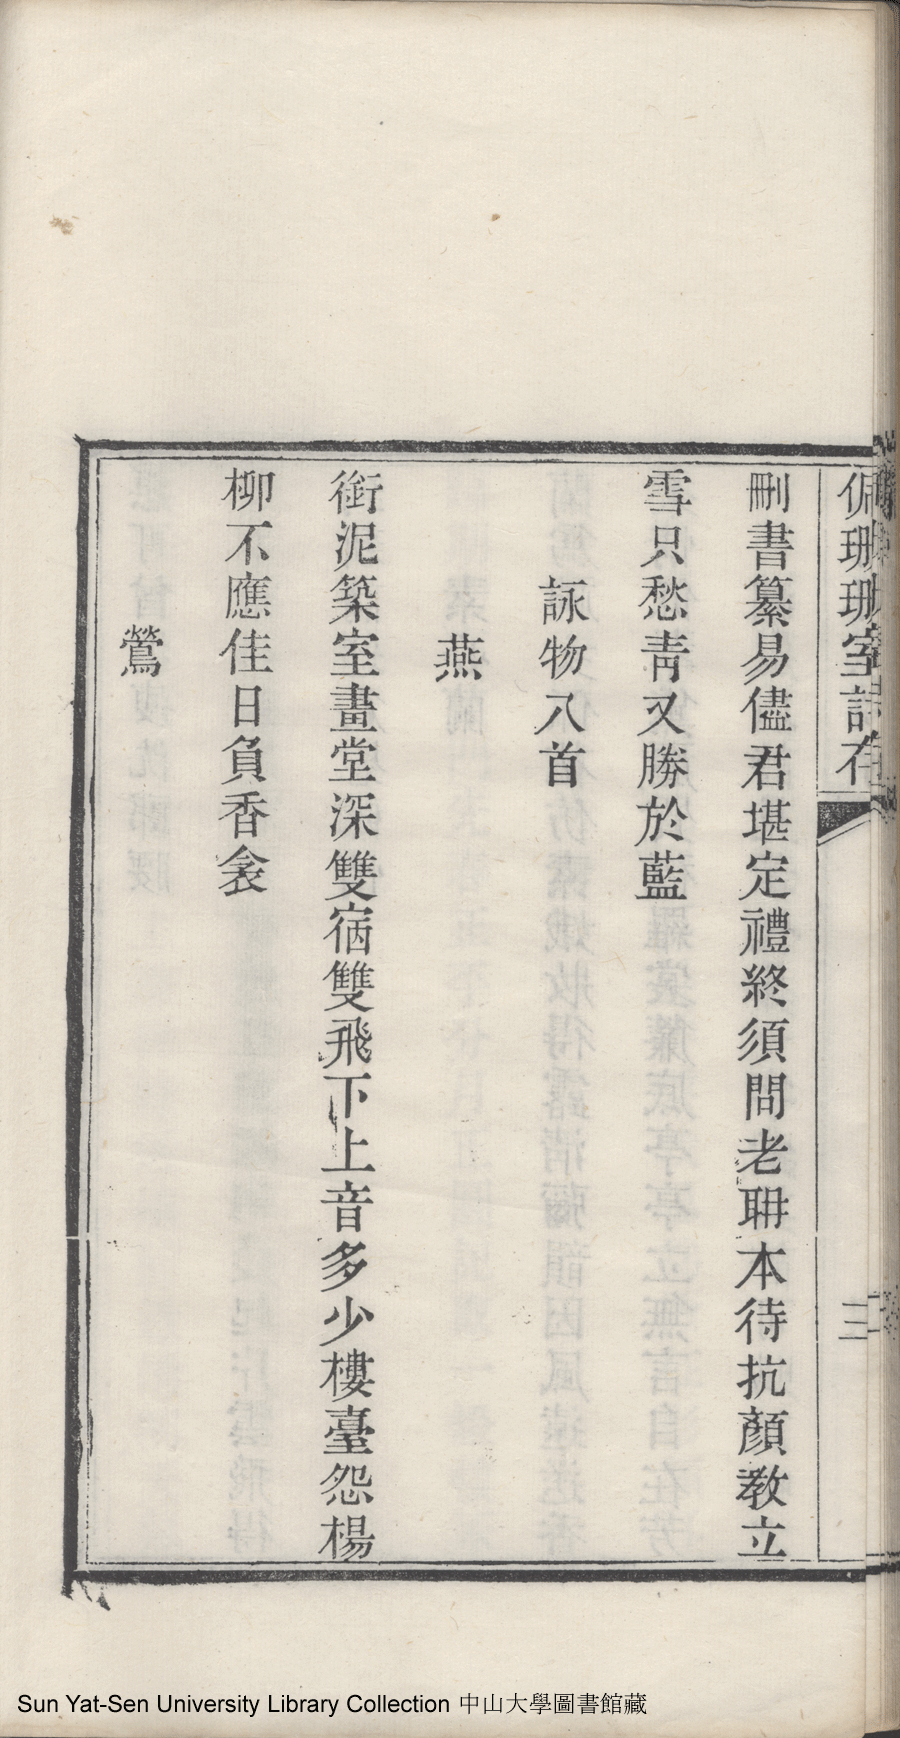 佩珊珊室詩存
三
刪書纂易儘君堪定禮終須問老聃本待抗顏教立
雪只愁靑又勝於藍
詠物八首
燕
銜泥築室畫堂深雙宿雙飛下上音多少樓臺怨楊
柳不應佳日負香衾
鶯
Sun Yat-Sen University Library Collection 中山大學圖書館藏